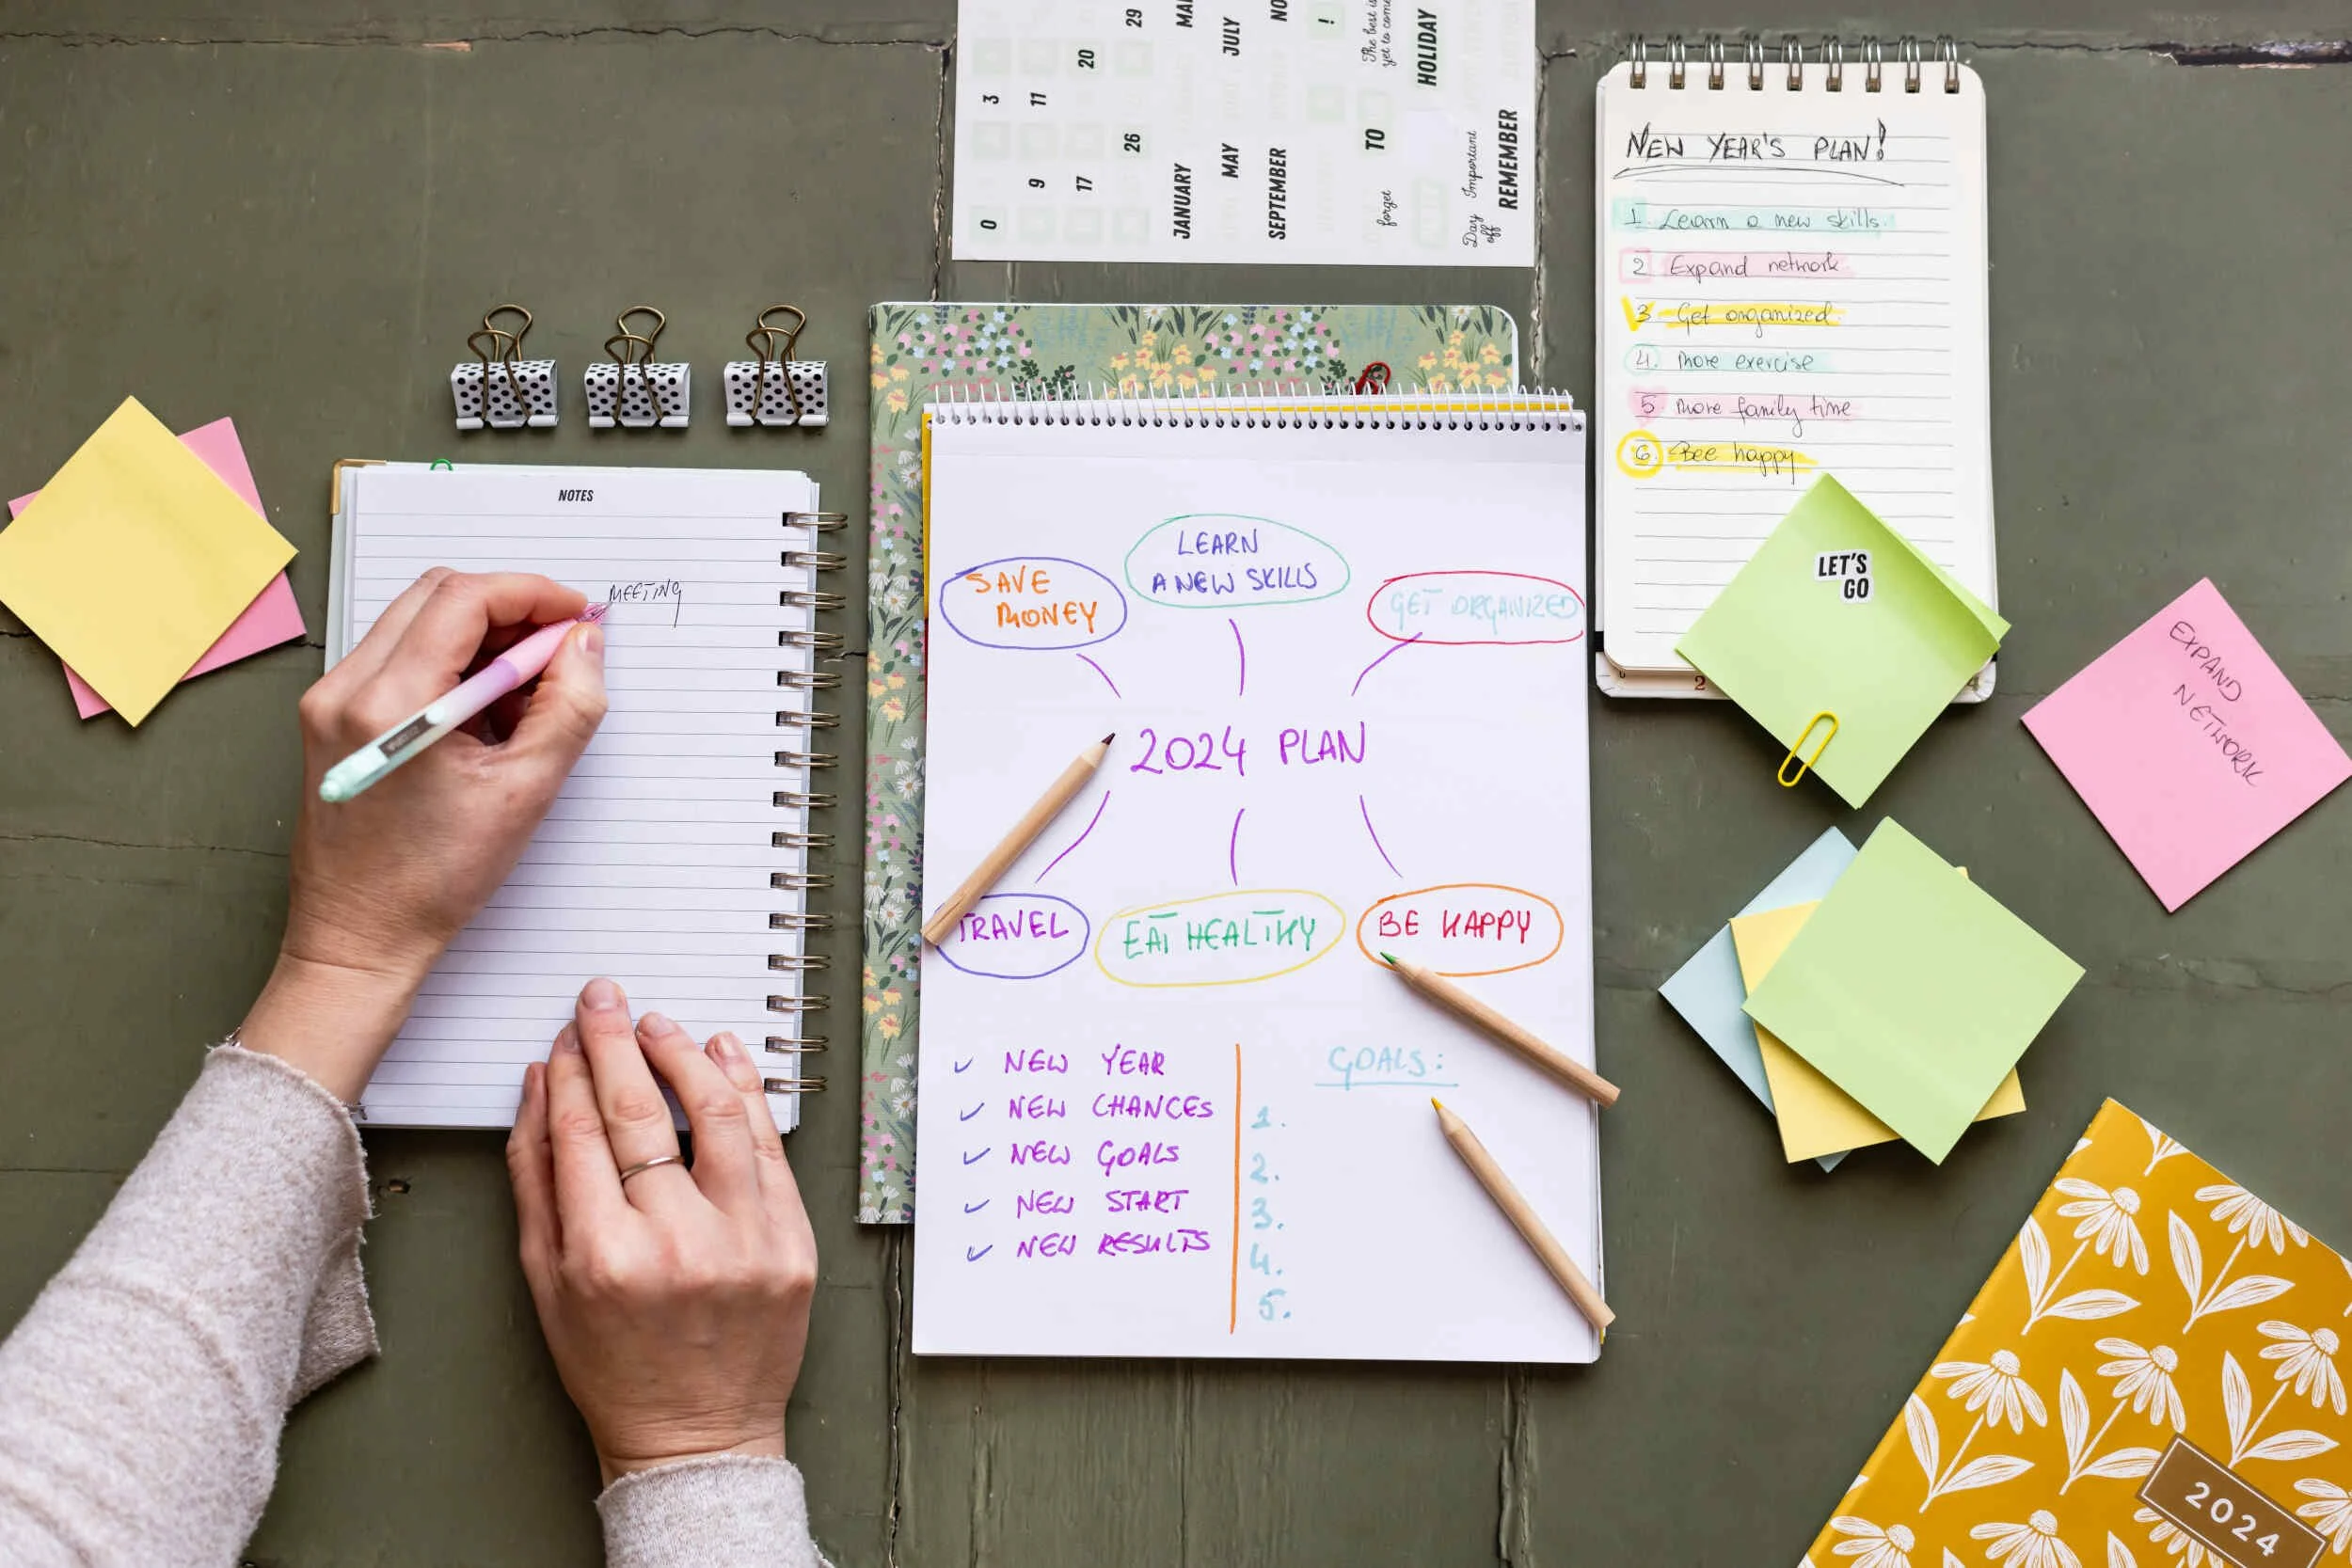 29
20
3
11
26
9
17
0
JULY
MAY
JANUARY
SEPTEMBER
!
The best is
yet to come
HOLIDAY
TO
forget
Important
Day
off
REMEMBER
NEW YEAR'S PLAN!
1. Learn a new skills.
2 Expand network.
3. Get organized.
4. more exercise
5. more family time
6. Bee happy
LET'S
GO
2
EXPAND
NETWORK
NOTES
MEETING
SAVE
MONEY
LEARN
A NEW SKILLS
GET ORGANIZED
2024 PLAN
TRAVEL
EAT HEALTHY
BE HAPPY
NEW YEAR
NEW CHANCES
NEW GOALS
NEW START
NEW RESULTS
GOALS:
1.
2.
3.
4.
5.
2024